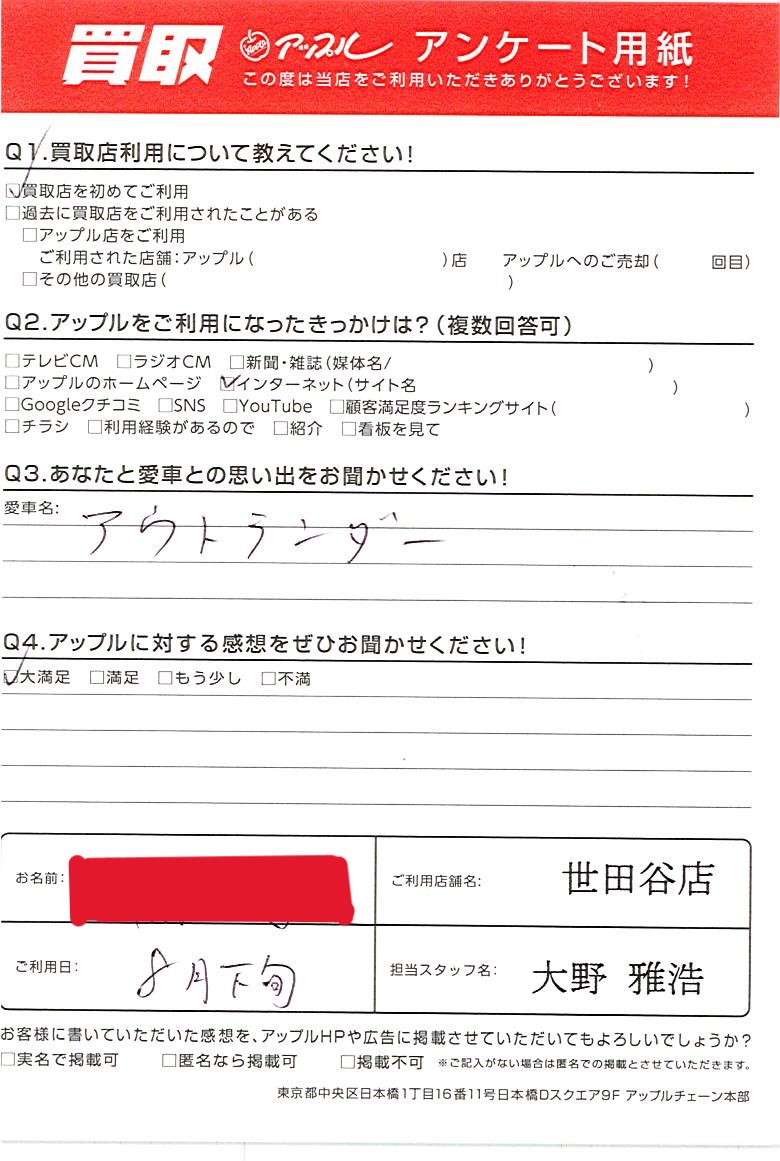 買取 アップル アンケート用紙
この度は当店をご利用いただきありがとうございます!
Q1.買取店利用について教えてください!
☑買取店を初めてご利用
□過去に買取店をご利用されたことがある
□アップル店をご利用
ご利用された店舗:アップル( )店 アップルへのご売却( 回目)
□その他の買取店( )
Q2.アップルをご利用になったきっかけは?(複数回答可)
□テレビCM □ラジオCM □新聞・雑誌(媒体名/ )
□アップルのホームページ ☑インターネット(サイト名 )
□Googleクチコミ □SNS □YouTube □顧客満足度ランキングサイト( )
□チラシ □利用経験があるので □紹介 □看板を見て
Q3.あなたと愛車との思い出をお聞かせください!
愛車名:
アウトランダー
Q4.アップルに対する感想をぜひお聞かせください!
☑大満足 □満足 □もう少し □不満
お名前:
ご利用店舗名: 世田谷店
ご利用日: 8月下旬
担当スタッフ名: 大野 雅浩
お客様に書いていただいた感想を、アップルHPや広告に掲載させていただいてもよろしいでしょうか?
□実名で掲載可 □匿名なら掲載可 □掲載不可 ※ご記入がない場合は匿名での掲載とさせていただきます。
東京都中央区日本橋1丁目16番11号日本橋Dスクエア9F アップルチェーン本部